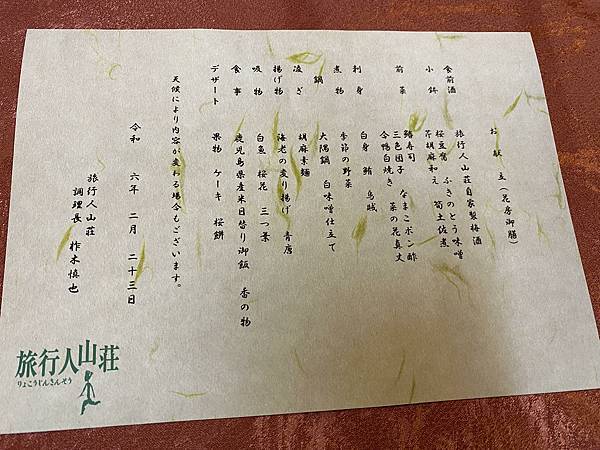 お献立(花房御膳)
食前酒 旅行人山荘自家製梅酒
小鉢 桜豆腐 ふきのとう味噌
芹胡麻和え 筍土佐煮
前菜 鯖寿司 なまこポン酢
三色団子 菜の花真丈
合鴨白焼き
刺身 白身 鮪 烏賊
煮物 季節の野菜
鍋 大隅鍋 白味噌仕立て
凌ぎ 胡麻素麺
揚げ物 海老の変り揚げ 青唐
吸物 白魚 桜花 三つ葉
食事 鹿児島県産米日替り御飯 香の物
デザート 果物 ケーキ 桜餅
天候により内容が変わる場合もございます。
令和 六年 二月 二十三日
旅行人山荘
調理長 柞木慎也
旅行人山荘
りょこうじんさんそう